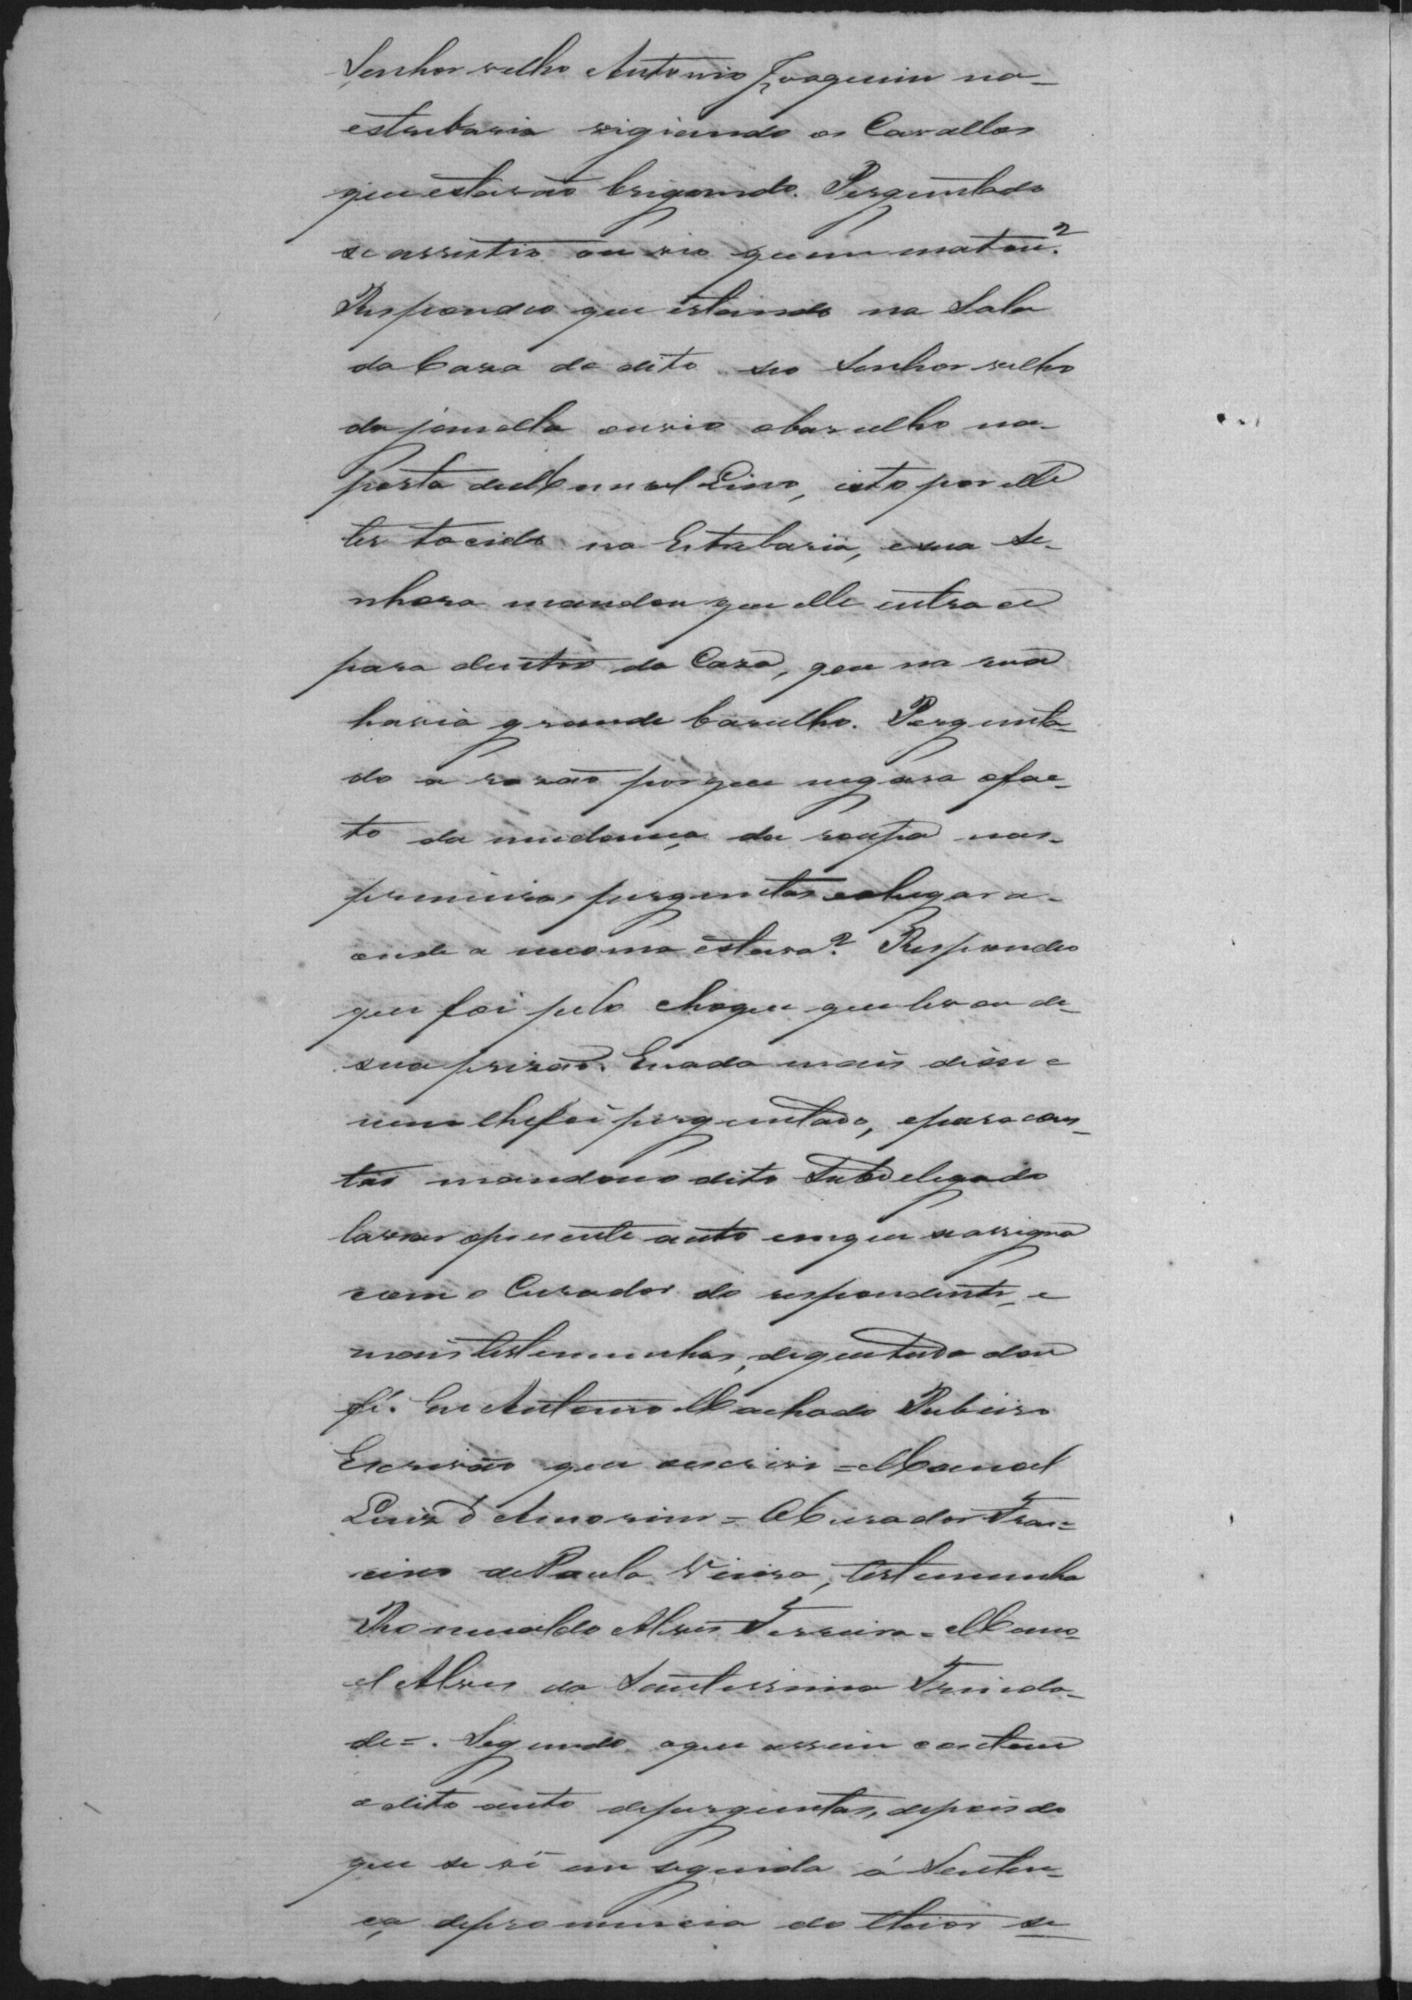 Senhor velho Antonio Joaquim na
estrebaria vigiando os Cavallos
que estavão brigando. Perguntado
se assistio ou vio quem matou?
Respondeo que estando na Sala
da Caza de dito seo Senhor velho
da janella ouvio obarulho na
porta de Manoel Lino, isto por elle
ter tocido na Estrebaria, e sua Se-
nhora mandou que elle entrace
para dentro da Caza, que na rua
havia grande barulho. Pergunta-
do a rasão porque negara ofac-
to da mudança da roupa nas
primeiras perguntas e olugar a-
onde a mesma estava? Respondeo
que foi pelo choque que levou de
sua prizão. E nada mais disse e
nem lhe foi perguntado, e para cons-
tar mandou o dito Subdelegado
lavrar opresente auto em que se assigna
com o Curador do respondente, e
mais testemunhas, de que tudo dou
fé. Eu Antonio Machado Ribeiro
Escrivão que escrevi = Manoel
Luiz d'Amorim = O Curador Fran-
cisco de Paula Vieira, testemunha
Romualdo Alves Ferreira = Mano-
el Alves da Santissima Trinda-
de =. Segundo oque assim contem
o dito auto deperguntas, depois do
que se vê em seguida á Senten-
ça depronuncia do theor se